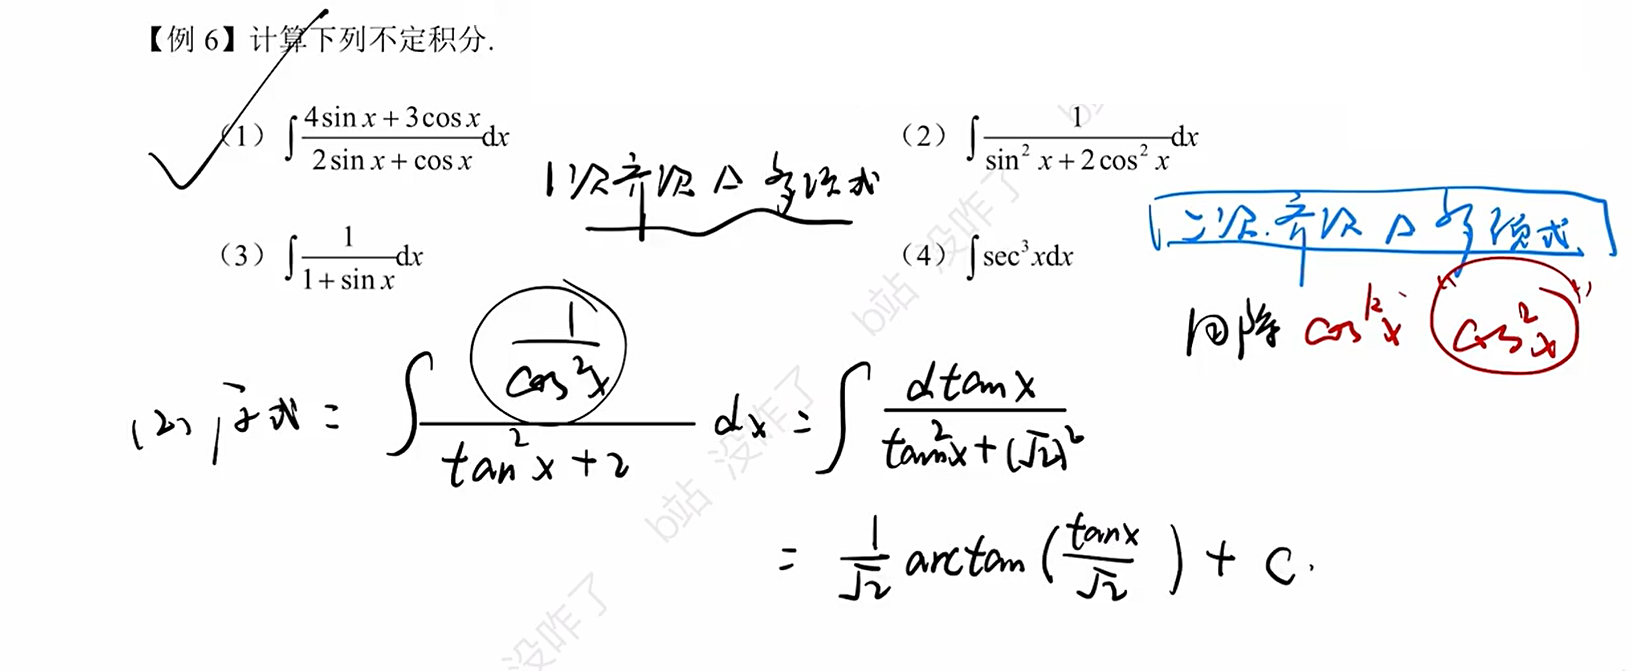 【例 6】计算下列不定积分.
(1) ∫ (4sin x + 3cos x)/(2sin x + cos x) dx
(2) ∫ 1/(sin² x + 2cos² x) dx
1次齐次△多项式
二次齐次△多项式
(3) ∫ 1/(1 + sin x) dx
(4) ∫ sec³ xdx
同除 cosᵏx cos²x
(2) 原式 = ∫ (1/cos²x)/(tan²x + 2) dx = ∫ dtanx/(tan²x + (√2)²)
= 1/√2 arctan(tanx/√2) + C.
b站 没咋了
b站 没咋了
没咋了